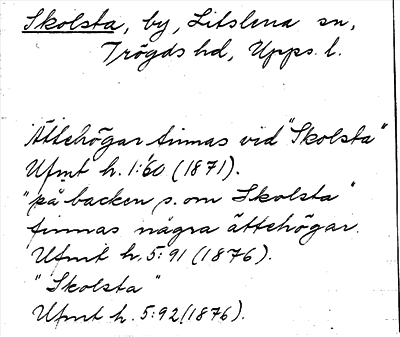 Skolsta, by, Litslena sn,
Trögds hd, Upps. l.
Ättehögar finnas vid "Skolsta"
Ufmt h. 1:60 (1871).
"på backen s. om Skolsta"
finnas några ättehögar.
Ufmt h. 5:91 (1876).
"Skolsta"
Ufmt h. 5:92 (1876).